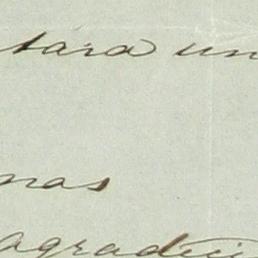 tara un
nas
agradeci